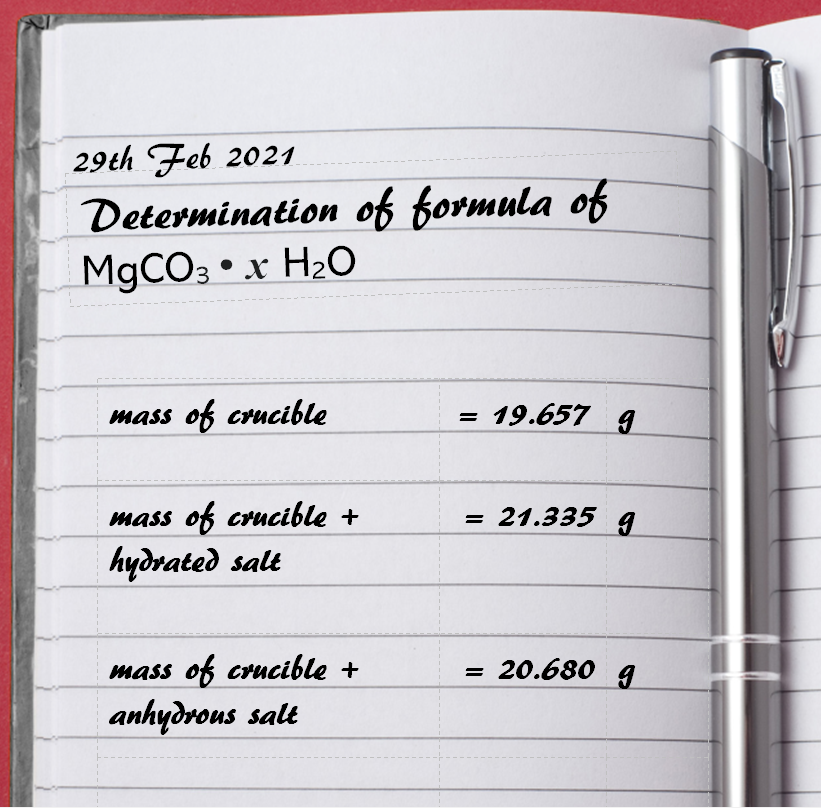 29th Feb 2021
Determination of formula of
MgCO₃ • x H₂O
mass of crucible = 19.657 g
mass of crucible + = 21.335 g
hydrated salt
mass of crucible + = 20.680 g
anhydrous salt